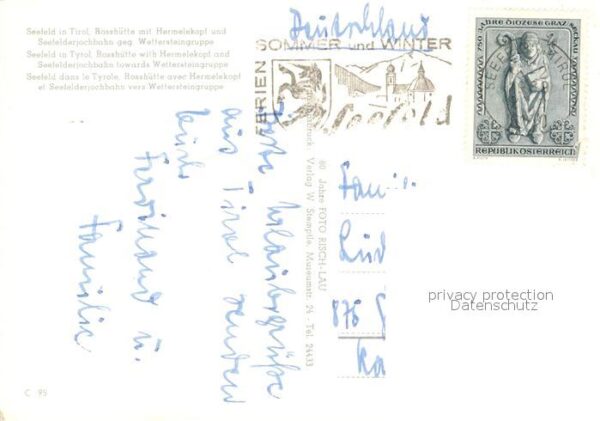 Seefeld in Tirol, Rosshütte mit Hermelekopf und
Seefelderjochbahn geg. Wettersteingruppe
Seefeld in Tyrol, Rosshütte with Hermelekopf and
Seefelderjochbahn towards Wettersteingruppe
Seefeld dans le Tyrole, Rosshütte avec Hermelekopf
et Seefelderjochbahn vers Wettersteingruppe
Deutschland
FERIEN
SOMMER und WINTER
Seefeld
750 JAHRE DIÖZESE GRAZ
REPUBLIK ÖSTERREICH
Beste Urlaubsgrüße
aus Tirol senden
Euch
Ferdinand u.
Familie
80 Jahre FOTO RISCH-LAU
Verlag W. Stempfle, Museumstr. 24 - Tel. 24433
Fam
876
Ka
privacy protection
Datenschutz
C 95